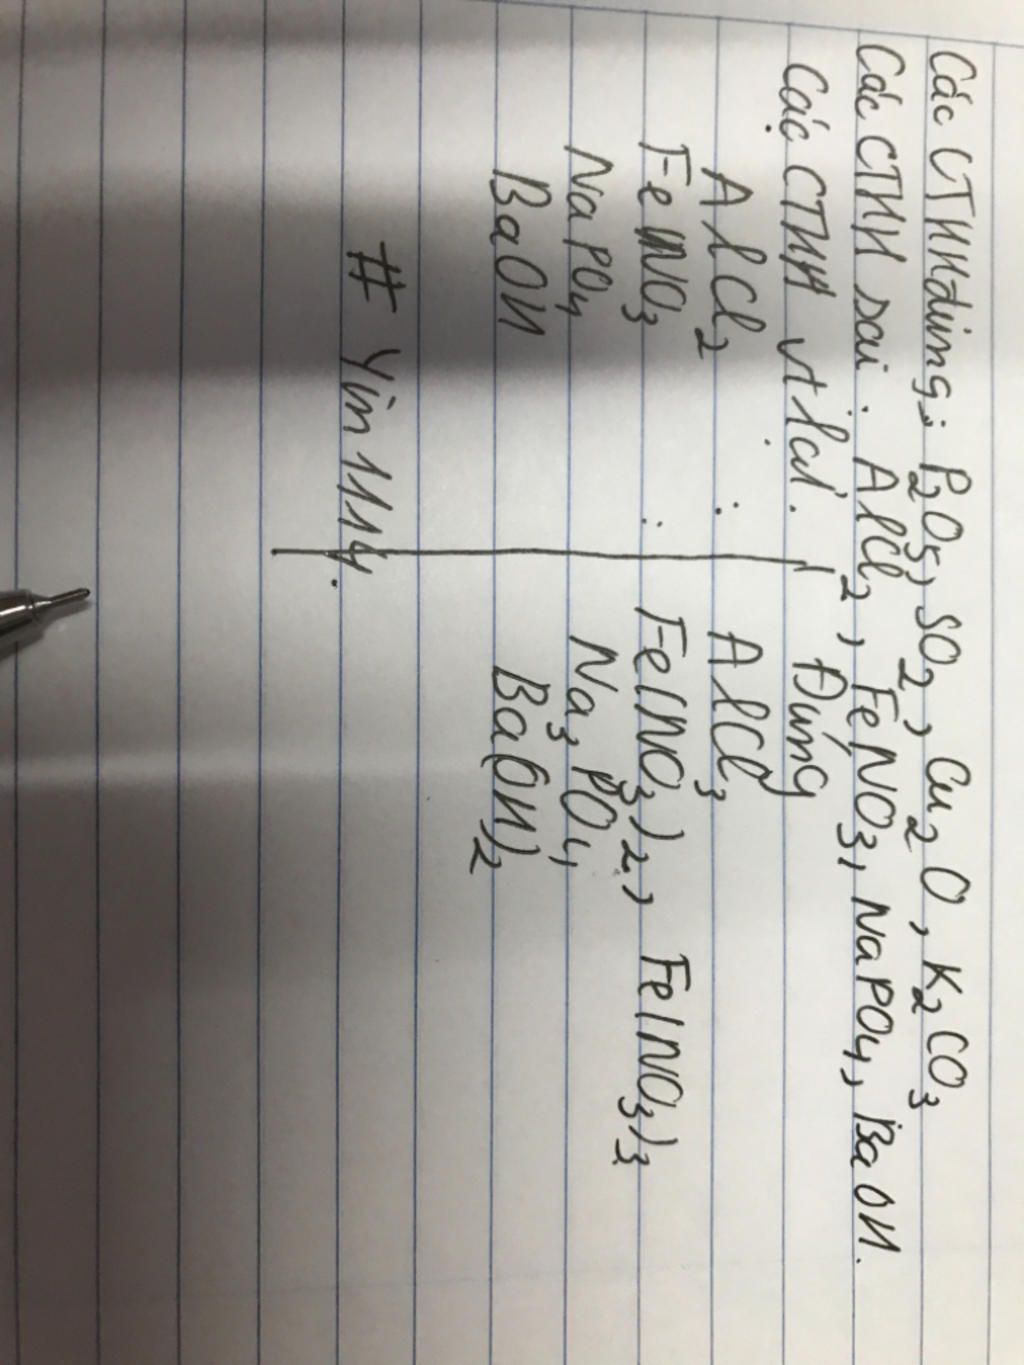 Các CTHH đúng: P2O5, SO2, Cu2O, K2CO3
Các CTHH sai: AlCl2, FeNO3, NaPO4, BaOH.
Các CTHH viết lại: | Đúng
AlCl2 | AlCl3
FeNO3 | Fe(NO3)2, Fe(NO3)3
NaPO4 | Na3PO4
BaOH | Ba(OH)2
# Yin1114.